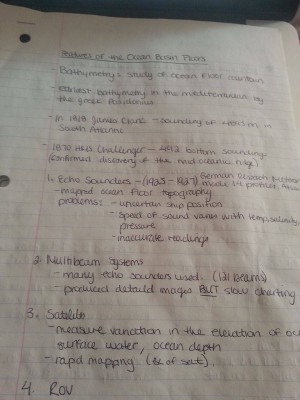 Features of the Ocean Basin Floors
- Bathymetry: study of ocean floor
- earliest bathymetry in the mediterranean by
the greek Posidonius
- In 1818 James Clark - sounding of
South Atlantic
- 1870 HMS Challenger - 492 bottom soundings
(confirmed discovery of the mid oceanic ridge)
1. Echo Sounders - (1925 - 1927) German research
made 14 profiles
- mapped ocean floor topography
problems: - uncertain ship position
- speed of sound varies with temp, salinity
pressure
- inaccurate readings
2. Multibeam Systems
- many echo sounders used (121 beams)
- produced detaild images BUT slow charting
3. Satellite
- measure variation in the elevation of
surface water, ocean depth
- rapid mapping (bc of sat).
4. ROV